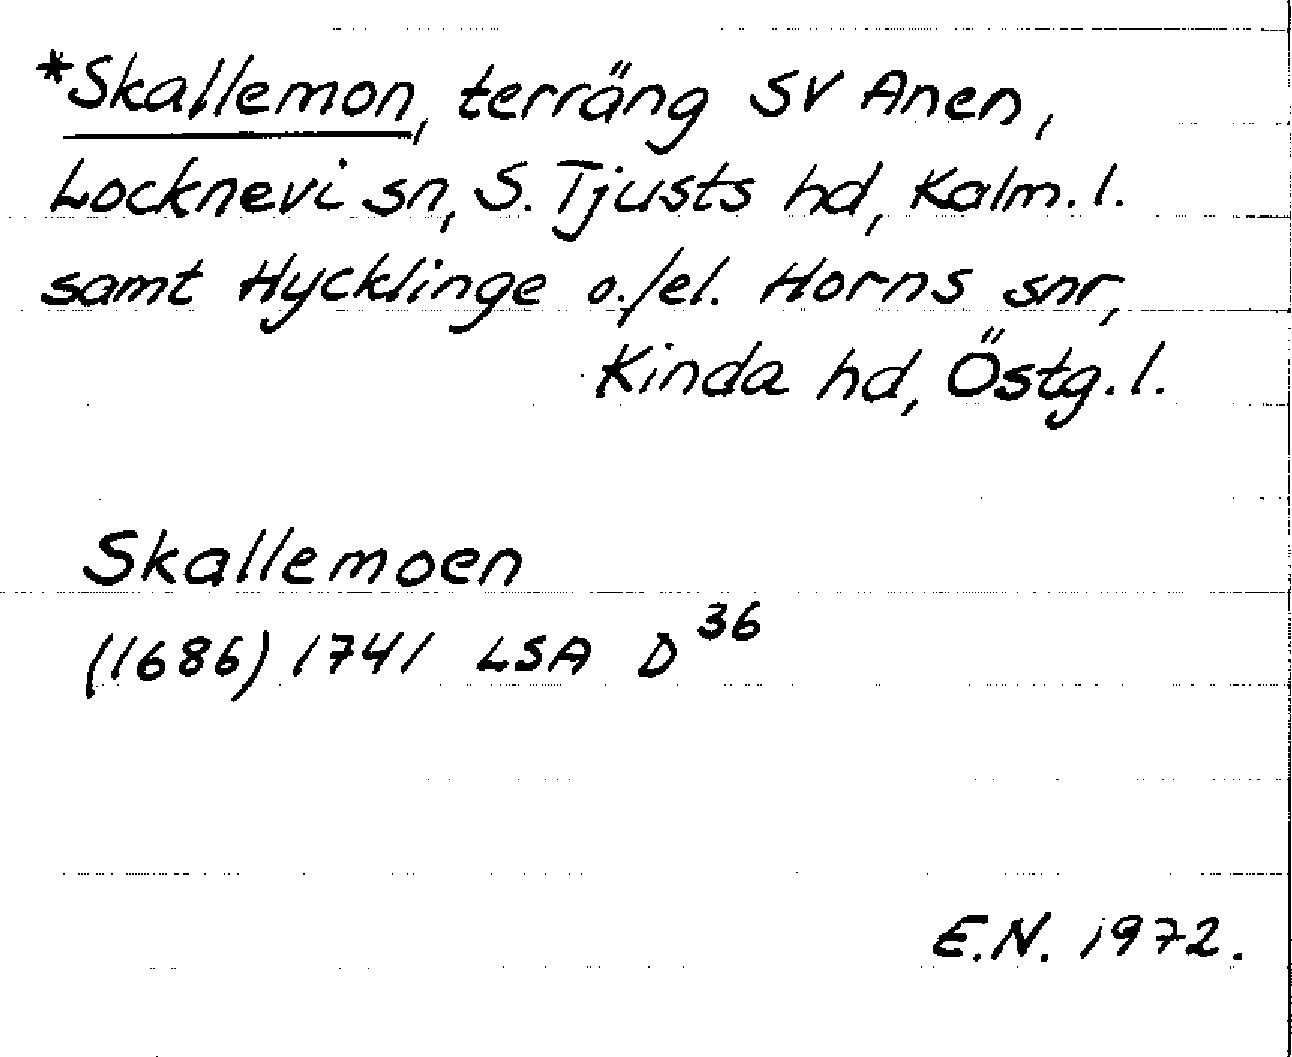 *Skallemon, terräng SV Anen,
Locknevi sn, S. Tjusts hd, Kalm. l.
samt Hycklinge o./el. Horns snr,
Kinda hd, Östg. l.
Skallemoen
(1686) 1741 LSA D 36
E.N. 1972.